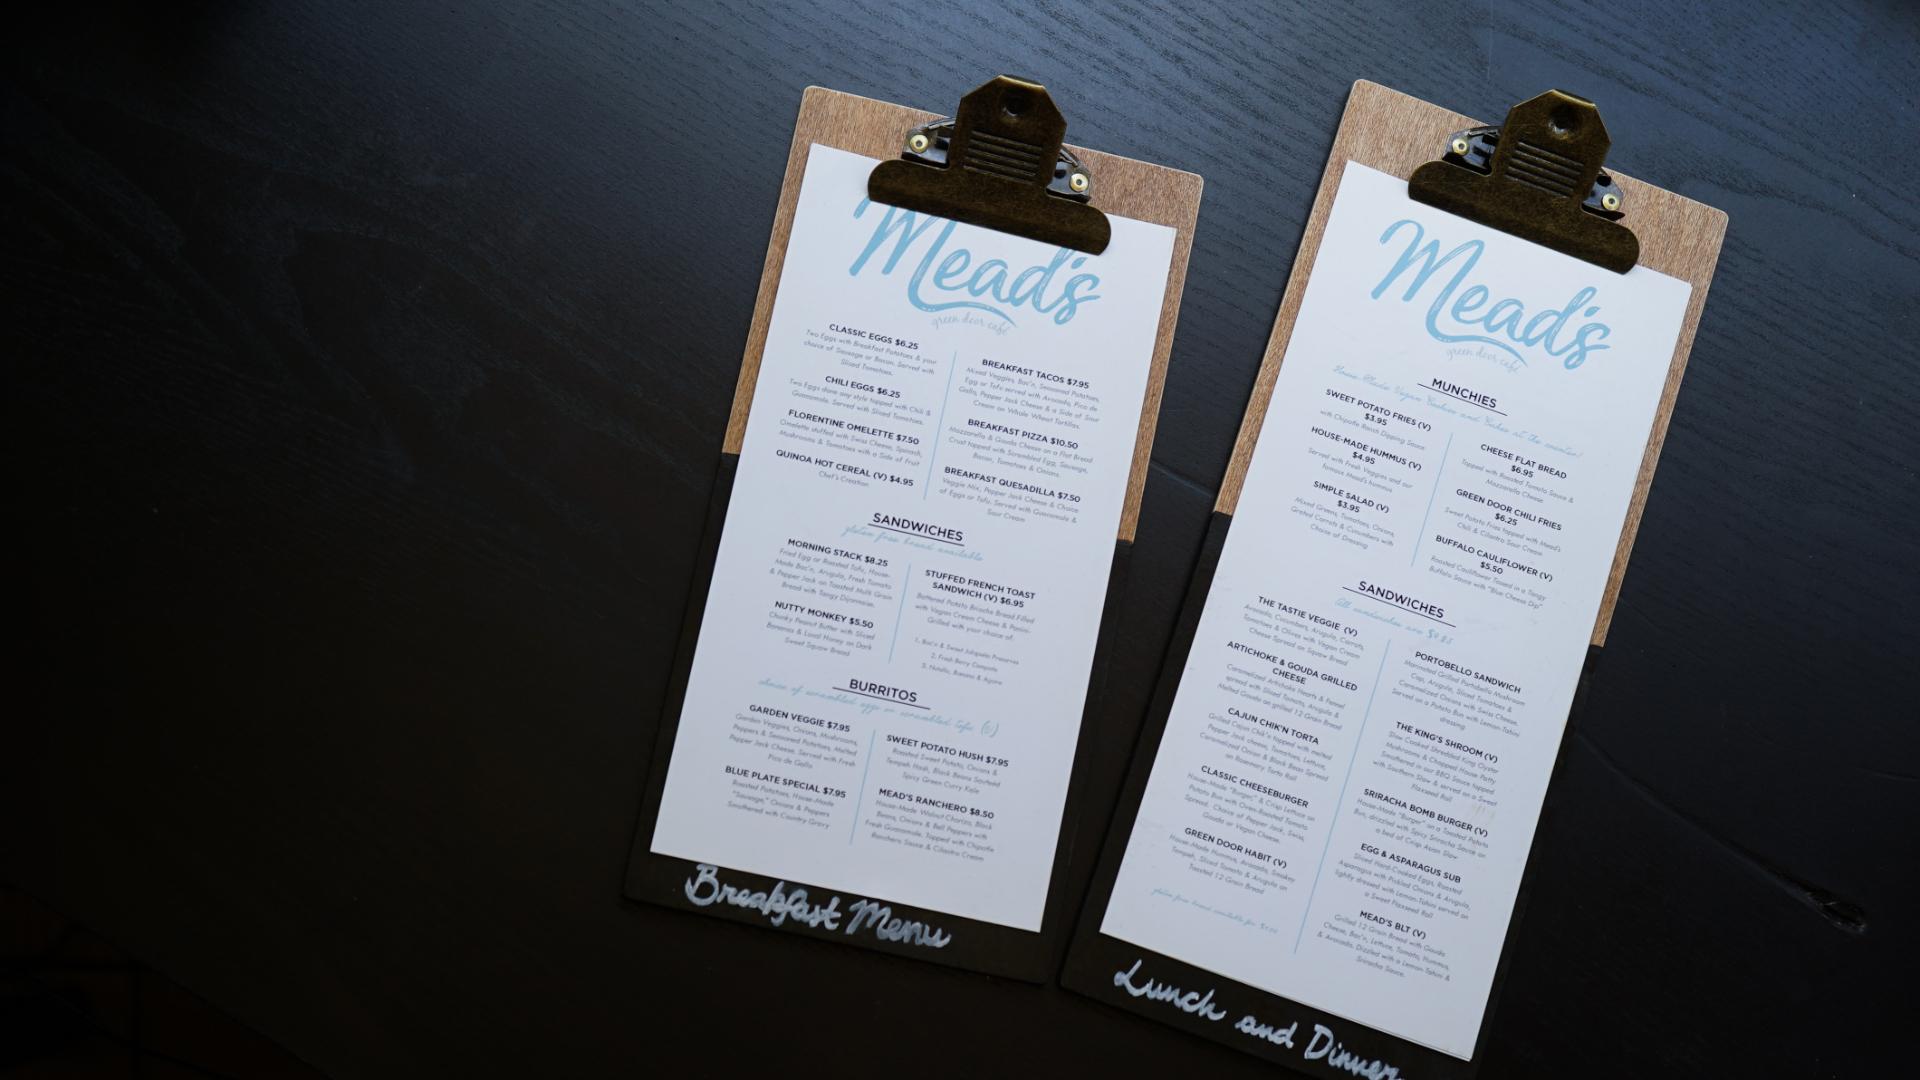 Mead's
green door café
CLASSIC EGGS $6.25
Two Eggs with Breakfast Potatoes & your
choice of Sausage or Bacon. Served with
Sliced Tomatoes.
CHILI EGGS $6.25
Two Eggs done any style topped with Chili &
Guacamole. Served with Sliced Tomatoes.
FLORENTINE OMELETTE $7.50
Omelette stuffed with Swiss Cheese, Spinach,
Mushrooms & Tomatoes with a Side of Fruit
QUINOA HOT CEREAL (V) $4.95
Chef's Creation
BREAKFAST TACOS $7.95
Mixed Veggies, Bac'n, Seasoned Potatoes,
Egg or Tofu served with Avocado, Pico de
Gallo, Pepper Jack Cheese & a Side of Sour
Cream on Whole Wheat Tortillas.
BREAKFAST PIZZA $10.50
Mozzarella & Gouda Cheese on a Flat Bread
Crust topped with Scrambled Egg, Sausage,
Bacon, Tomatoes & Onions.
BREAKFAST QUESADILLA $7.50
Veggie Mix, Pepper Jack Cheese & Choice
of Eggs or Tofu. Served with Guacamole &
Sour Cream
SANDWICHES
gluten free bread available
MORNING STACK $8.25
Fried Egg or Roasted Tofu, House-
Made Bac'n, Arugula, Fresh Tomato
& Pepper Jack on Toasted Multi Grain
Bread with Tangy Dijonnaise.
NUTTY MONKEY $5.50
Chunky Peanut Butter with Sliced
Bananas & Local Honey on Dark
Sweet Squaw Bread
STUFFED FRENCH TOAST
SANDWICH (V) $6.95
Battered Potato Brioche Bread Filled
with Vegan Cream Cheese & Panini-
Grilled with your choice of:
1. Bac'n & Sweet Jalapeño Preserves
2. Fresh Berry Compote
3. Nutella, Banana & Agave
BURRITOS
choice of scrambled eggs or scrambled tofu (v)
GARDEN VEGGIE $7.95
Garden Veggies, Onions, Mushrooms,
Peppers & Seasoned Potatoes, Melted
Pepper Jack Cheese. Served with Fresh
Pico de Gallo
BLUE PLATE SPECIAL $7.95
Roasted Potatoes, House-Made
"Sausage," Onions & Peppers
Smothered with Country Gravy
SWEET POTATO HUSH $7.95
Roasted Sweet Potato, Onions &
Tempeh Hash, Black Beans Sautéed
Spicy Green Curry Kale
MEAD'S RANCHERO $8.50
House-Made Walnut Chorizo, Black
Beans, Onions & Bell Peppers with
Fresh Guacamole. Topped with Chipotle
Ranchero Sauce & Cilantro Cream
Breakfast Menu
Mead's
green door café
MUNCHIES
House-Made Vegan Cookies and Cakes at the counter!
SWEET POTATO FRIES (V)
$3.95
with Chipotle Ranch Dipping Sauce
HOUSE-MADE HUMMUS (V)
$4.95
Served with Fresh Veggies and our
famous Mead's hummus
SIMPLE SALAD (V)
$3.95
Mixed Greens, Tomatoes, Onions,
Grated Carrots & Cucumbers with
Choice of Dressing
CHEESE FLAT BREAD
$6.95
Topped with Roasted Tomato Sauce &
Mozzarella Cheese
GREEN DOOR CHILI FRIES
$6.25
Sweet Potato Fries topped with Mead's
Chili & Cilantro Sour Cream
BUFFALO CAULIFLOWER (V)
$5.50
Roasted Cauliflower Tossed in a Tangy
Buffalo Sauce with "Blue Cheese Dip"
SANDWICHES
All sandwiches are
THE TASTIE VEGGIE (V)
Avocado, Cucumbers, Arugula, Carrots,
Tomatoes & Olives with Vegan Cream
Cheese Spread on Squaw Bread
ARTICHOKE & GOUDA GRILLED
CHEESE
Caramelized Artichoke Hearts & Fennel
spread with Sliced Tomato, Arugula &
Melted Gouda on grilled 12 Grain Bread
CAJUN CHIK'N TORTA
Grilled Cajun Chik'n topped with melted
Pepper Jack cheese, Tomatoes, Lettuce,
Caramelized Onion & Black Bean Spread
on Rosemary Torta Roll
CLASSIC CHEESEBURGER
House-Made "Burger," & Crisp Lettuce on
Potato Bun with Oven-Roasted Tomato
Spread. Choice of Pepper Jack, Swiss,
Gouda or Vegan Cheese.
GREEN DOOR HABIT (V)
House-Made Hummus, Avocado, Smokey
Tempeh, Sliced Tomato & Arugula on
Toasted 12 Grain Bread
gluten free bread available for
PORTOBELLO SANDWICH
Marinated Grilled Portobello Mushroom
Cap, Arugula, Sliced Tomatoes &
Caramelized Onions with Swiss Cheese.
Served on a Potato Bun with Lemon-Tahini
dressing
THE KING'S SHROOM (V)
Slow Cooked Shredded King Oyster
Mushrooms & Chopped House Patty
Smothered in our BBQ Sauce topped
with Southern Slaw & served on a Sweet
Flaxseed Roll
SRIRACHA BOMB BURGER (V)
House-Made "Burger" on a Toasted Potato
Bun, drizzled with Spicy Sriracha Sauce on
a bed of Crisp Asian Slaw
EGG & ASPARAGUS SUB
Sliced Hard-Cooked Eggs, Roasted
Asparagus with Pickled Onions & Arugula,
lightly dressed with Lemon-Tahini served on
a Sweet Flaxseed Roll
MEAD'S BLT (V)
Grilled 12 Grain Bread with Gouda
Cheese, Bac'n, Lettuce, Tomato, Hummus,
& Avocado. Dizzled with a Lemon-Tahini &
Sriracha Sauce.
Lunch and Dinner